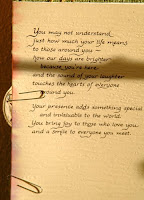 You may not understand
just how much your life means
to those around you —
how our days are brighter
because you're here,
and the sound of your laughter
touches the hearts of everyone
around you.
Your presence adds something special
and invaluable to the world.
You bring joy to those who love you
and a smile to everyone you meet.